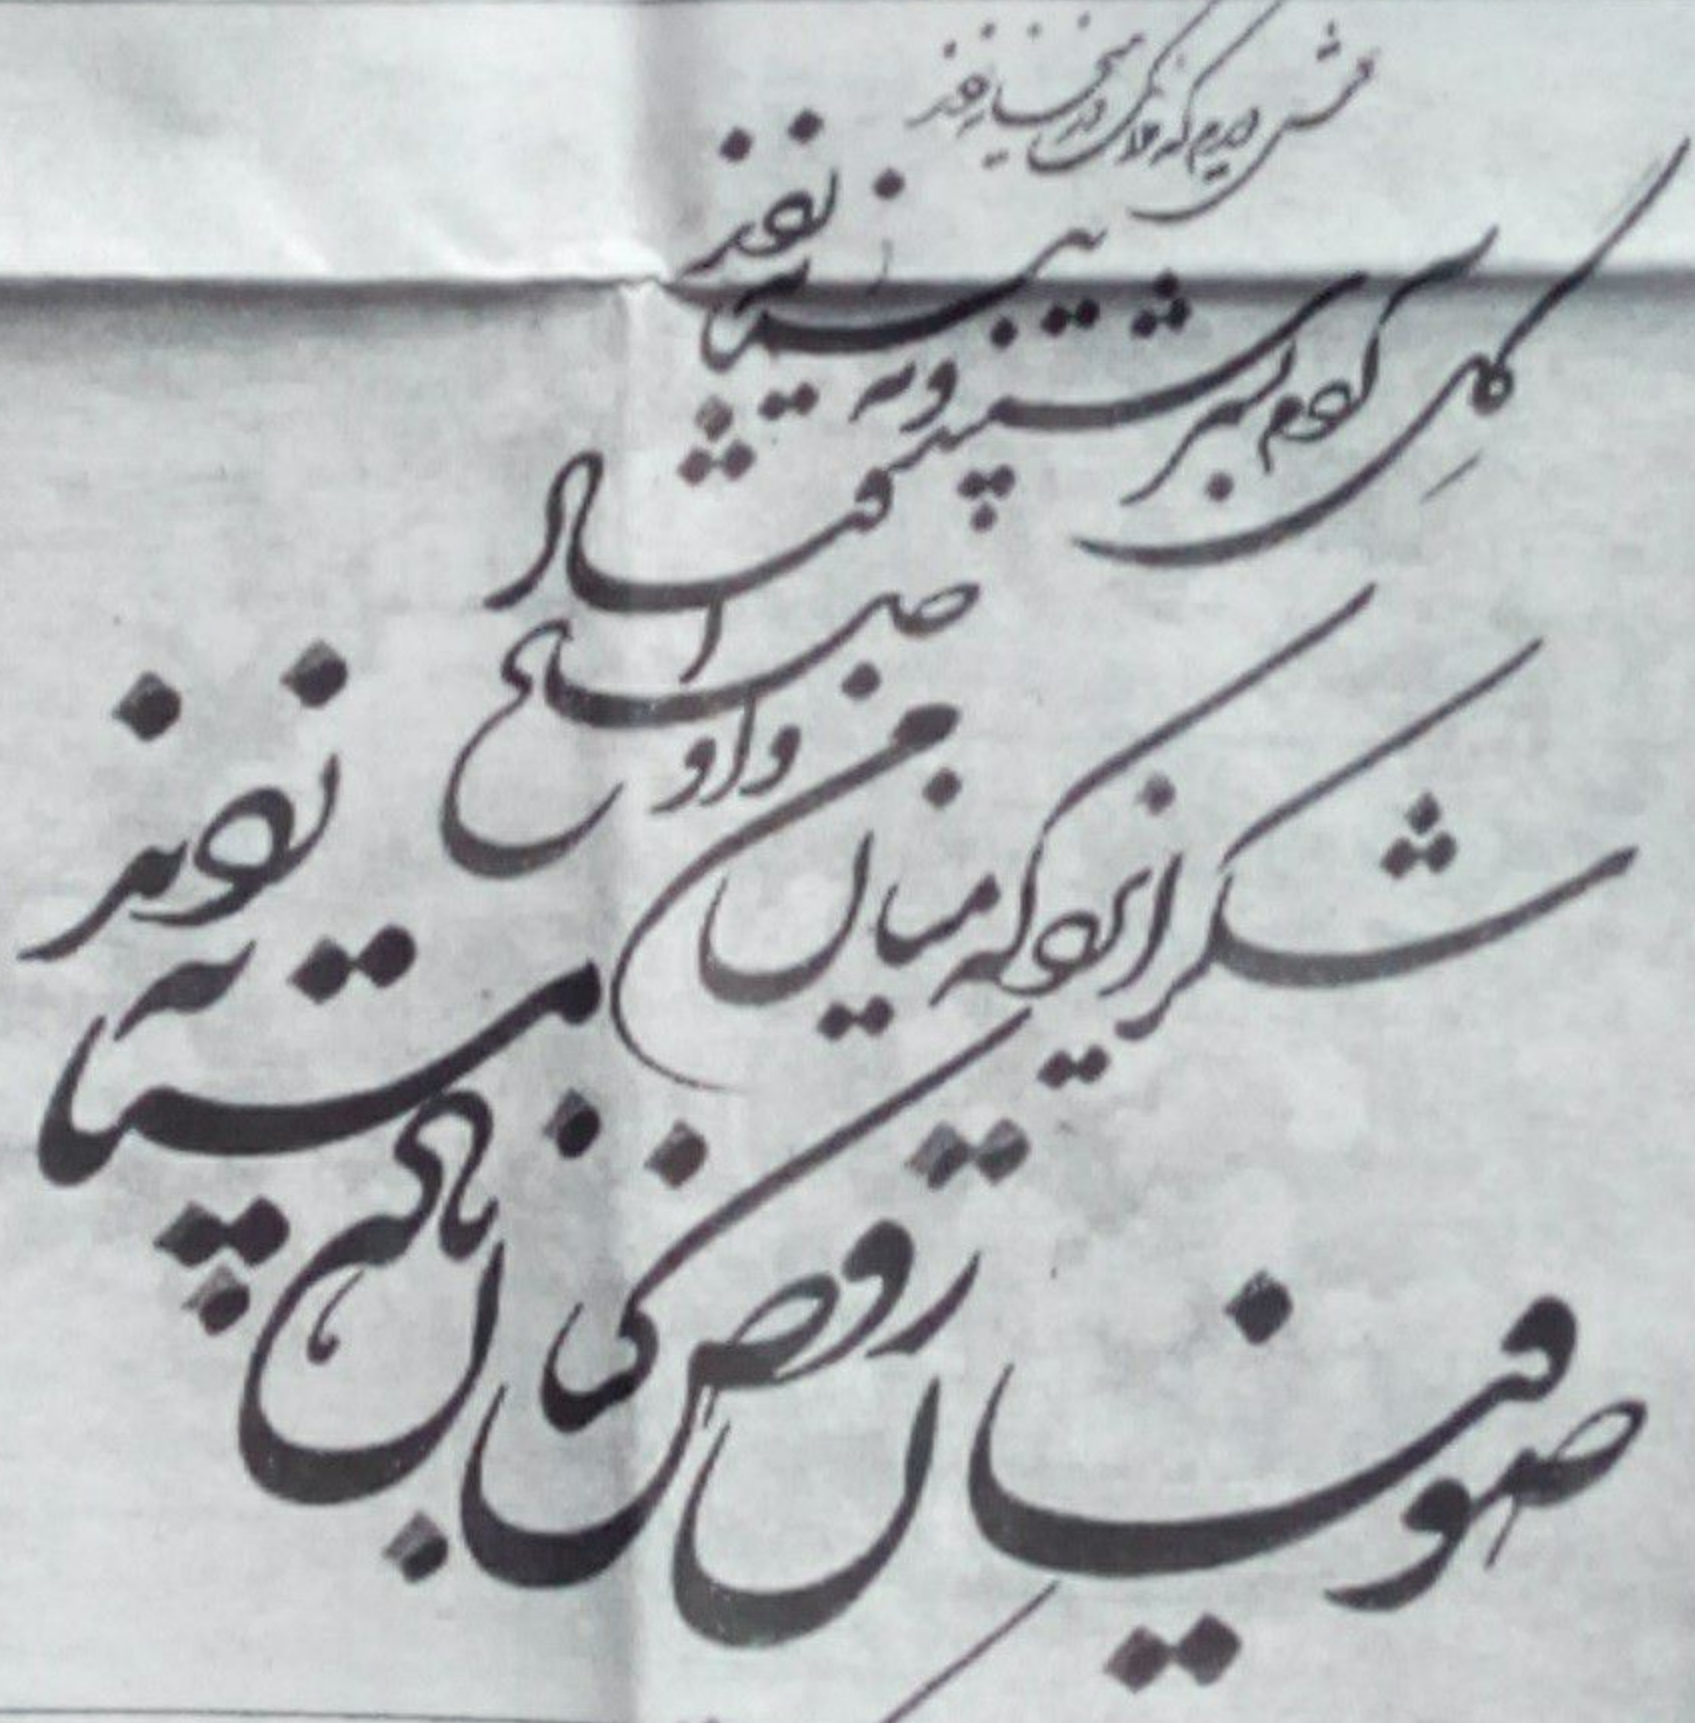 دوش دیدم که ملائک در میخانه زدند
گلِ آدم بسرشتند و به پیمانه زدند
شکر ایزد که میان من و او صلح افتاد
صوفیان رقص کنان زدند